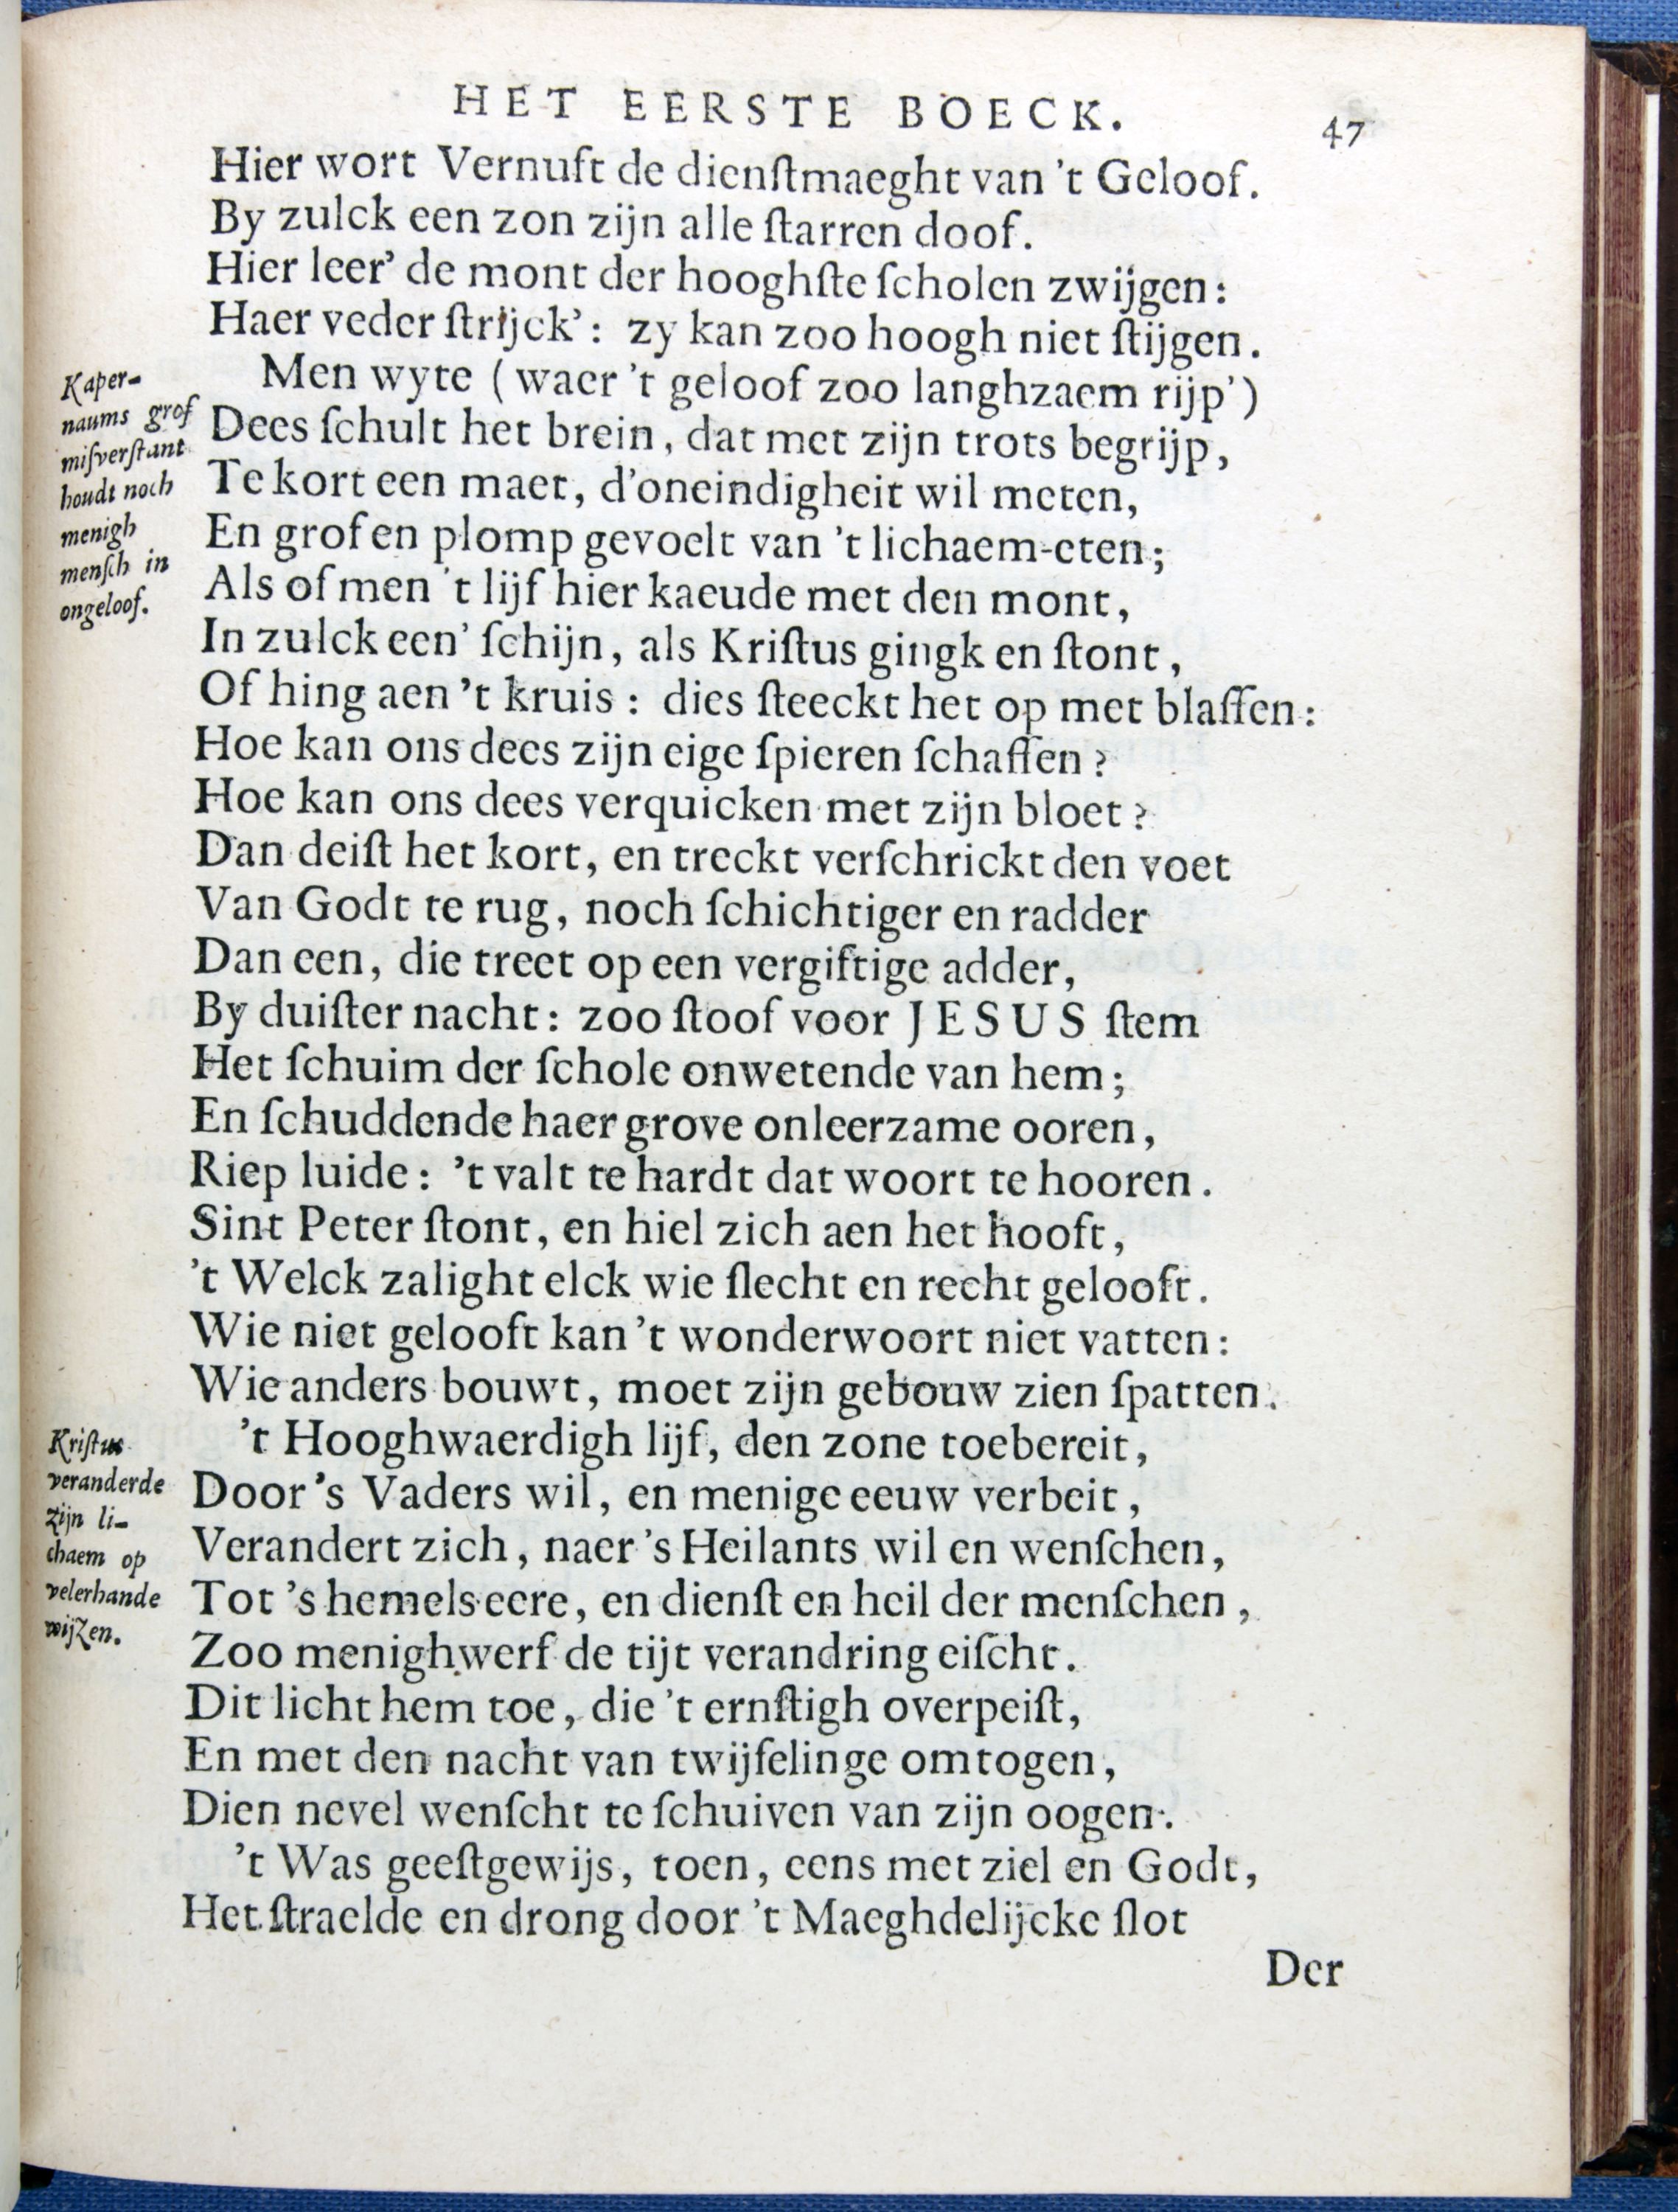 HET EERSTE BOECK. 47
Hier wort Vernuft de dienſtmaeght van 't Geloof.
By zulck een zon zijn alle ſtarren doof.
Hier leer' de mont der hooghſte ſcholen zwijgen:
Haer veder ſtrijck': zy kan zoo hoogh niet ſtijgen.
Kaper-
naums grof
miſverſtant
houdt noch
menigh
menſch in
ongeloof.
Men wyte (waer 't geloof zoo langhzaem rijp')
Dees ſchult het brein, dat met zijn trots begrijp,
Te kort een maet, d'oneindigheit wil meten,
En grof en plomp gevoelt van 't lichaem-eten;
Als of men 't lijf hier kaeude met den mont,
In zulck een' ſchijn, als Kriſtus gingk en ſtont,
Of hing aen 't kruis: dies ſteeckt het op met blaffen:
Hoe kan ons dees zijn eige ſpieren ſchaffen?
Hoe kan ons dees verquicken met zijn bloet?
Dan deiſt het kort, en treckt verſchrickt den voet
Van Godt te rug, noch ſchichtiger en radder
Dan een, die treet op een vergiftige adder,
By duiſter nacht: zoo ſtoof voor JESUS ſtem
Het ſchuim der ſchole onwetende van hem;
En ſchuddende haer grove onleerzame ooren,
Riep luide: 't valt te hardt dat woort te hooren.
Sint Peter ſtont, en hiel zich aen het hooft,
't Welck zalight elck wie ſlecht en recht gelooft.
Wie niet gelooft kan 't wonderwoort niet vatten:
Wie anders bouwt, moet zijn gebouw zien ſpatten.
Kriſtus
veranderde
zijn li-
chaem op
velerhande
wijzen.
't Hooghwaerdigh lijf, den zone toebereit,
Door 's Vaders wil, en menige eeuw verbeit,
Verandert zich, naer 's Heilants wil en wenſchen,
Tot 's hemels eere, en dienſt en heil der menſchen,
Zoo menighwerf de tijt verandring eiſcht.
Dit licht hem toe, die 't ernſtigh overpeiſt,
En met den nacht van twijfelinge omtogen,
Dien nevel wenſcht te ſchuiven van zijn oogen.
't Was geeſtgewijs, toen, eens met ziel en Godt,
Het ſtraelde en drong door 't Maeghdelijcke ſlot
Der